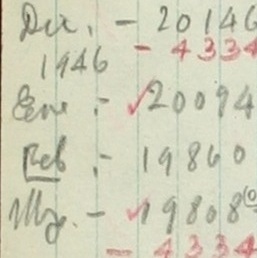 Dic. - 20146
- 4334
1946
Ene - √20094
Feb - 19860
Mzo. - √19808
- 4334